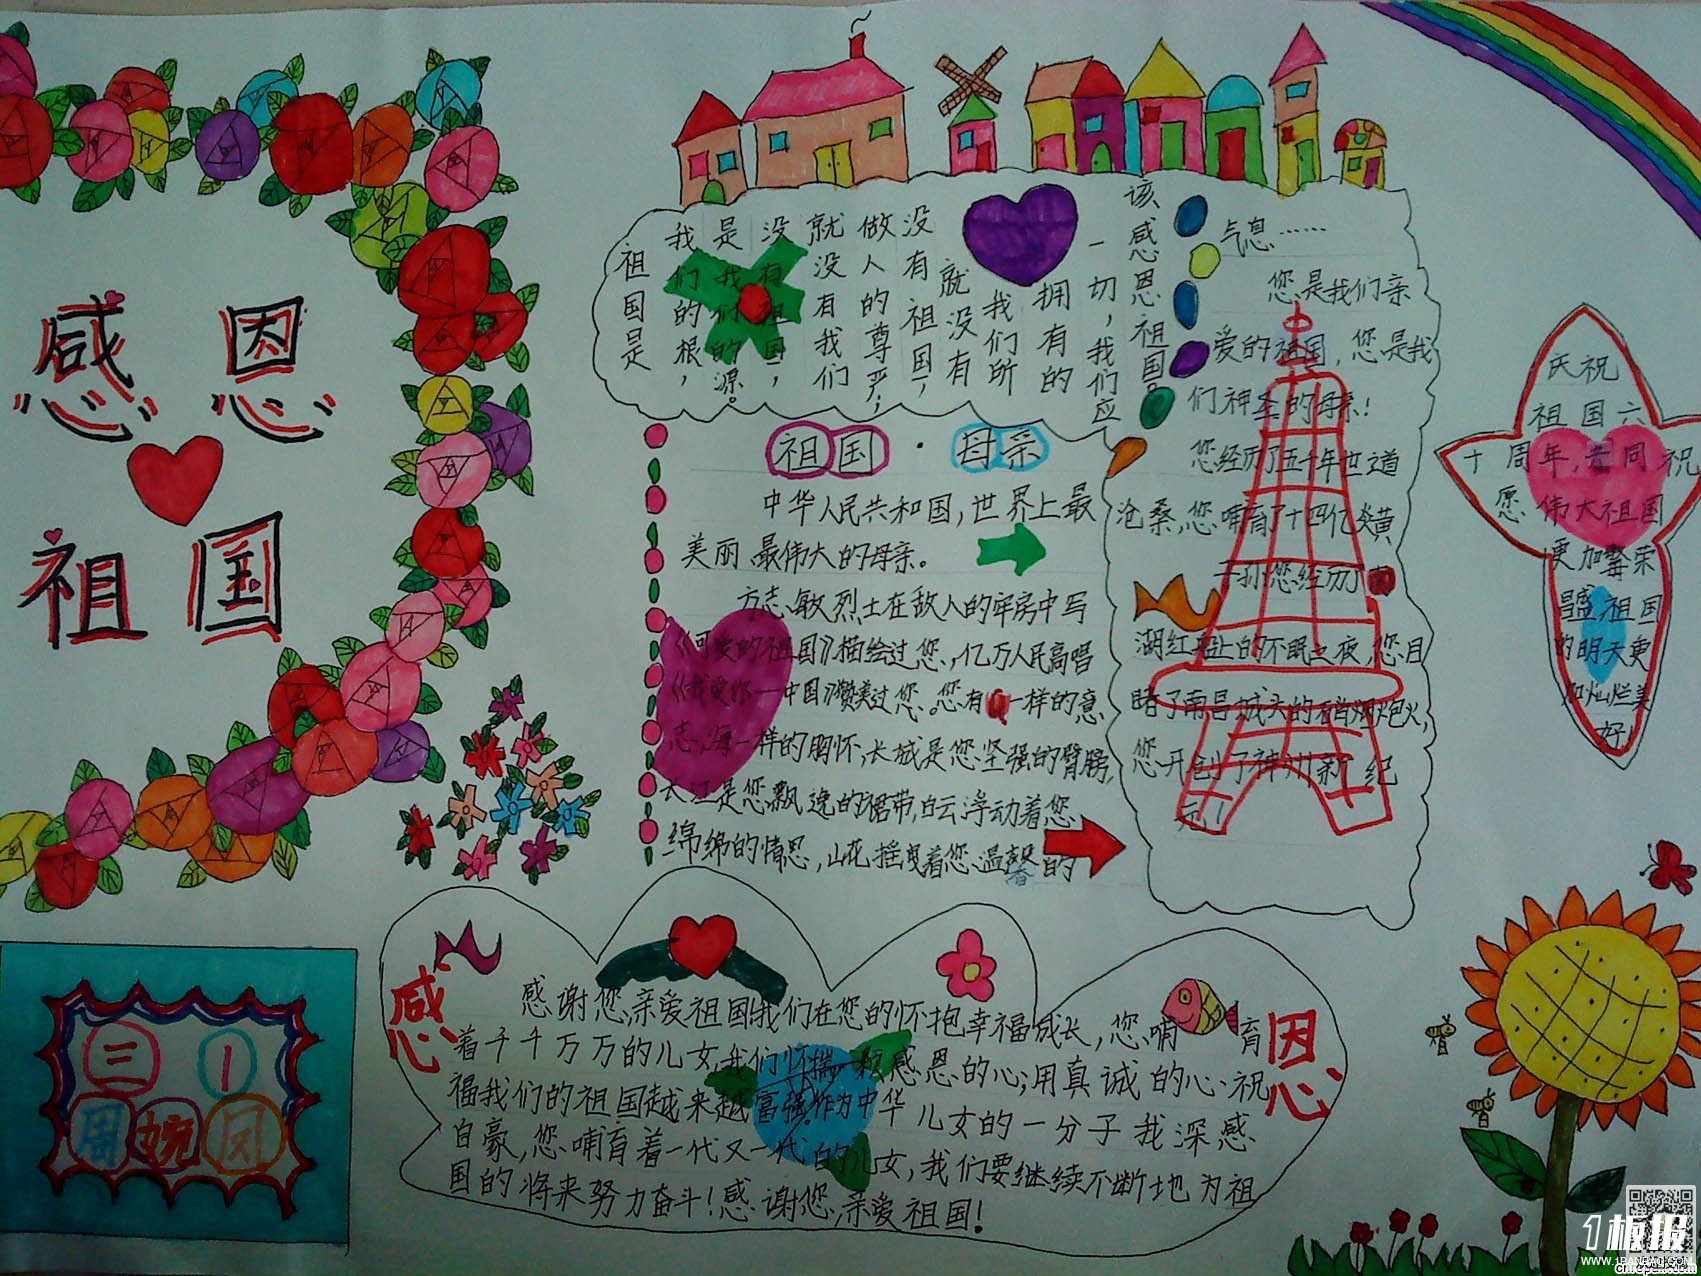 感恩
祖国
祖国是
我们的根，
是我们的源。
没有祖国，
就没有我们
做人的尊严；
没有祖国，
就没有
我们所
拥有的
一切，我们应
该感恩祖国。
祖国·母亲
中华人民共和国，世界上最
美丽、最伟大的母亲。
方志敏烈士在敌人的牢房中写
《可爱的祖国》描绘过您，亿万人民高唱
《我爱你——中国》赞美过您。您有一样的意
志，海一样的胸怀，长城是您坚强的臂膀，
长江是您飘逸的裙带，白云浮动着您
绵绵的情思，山花摇曳着您温馨的
气息……
您是我们亲
爱的祖国，您是我
们神圣的母亲！
您经历了五千年世道
沧桑，您哺育了十四亿炎黄
子孙您经历了
湖红船上的不眠之夜，您目
睹了南昌城头的硝烟炮火，
您开创了神州新纪
元！
庆祝
祖国六
十周年，共同祝
愿伟大祖国
更加繁荣
昌盛祖国
的明天更
加灿烂美
好！
三1
周婉凤
感恩
感谢您，亲爱祖国我们在您的怀抱幸福成长，您哺育
着千千万万的儿女，我们怀揣一颗感恩的心；用真诚的心祝
福我们的祖国越来越富强。作为中华儿女的一分子我深感
自豪，您哺育着一代又一代的儿女，我们要继续不断地为祖
国的将来努力奋斗！感谢您，亲爱祖国！
1板报
WWW.1BANBAO.COM